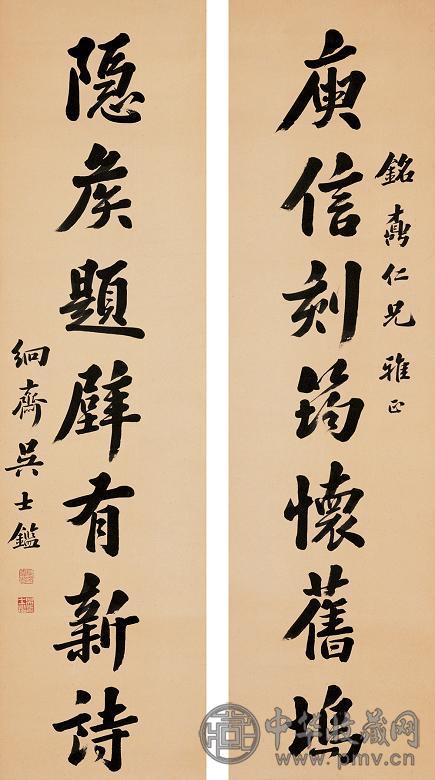 銘 仁兄雅正
庾信刻筠懷舊塢
隱侯題壁有新詩
絅齋吳士鑑
中华收藏网
www.pmv.cn